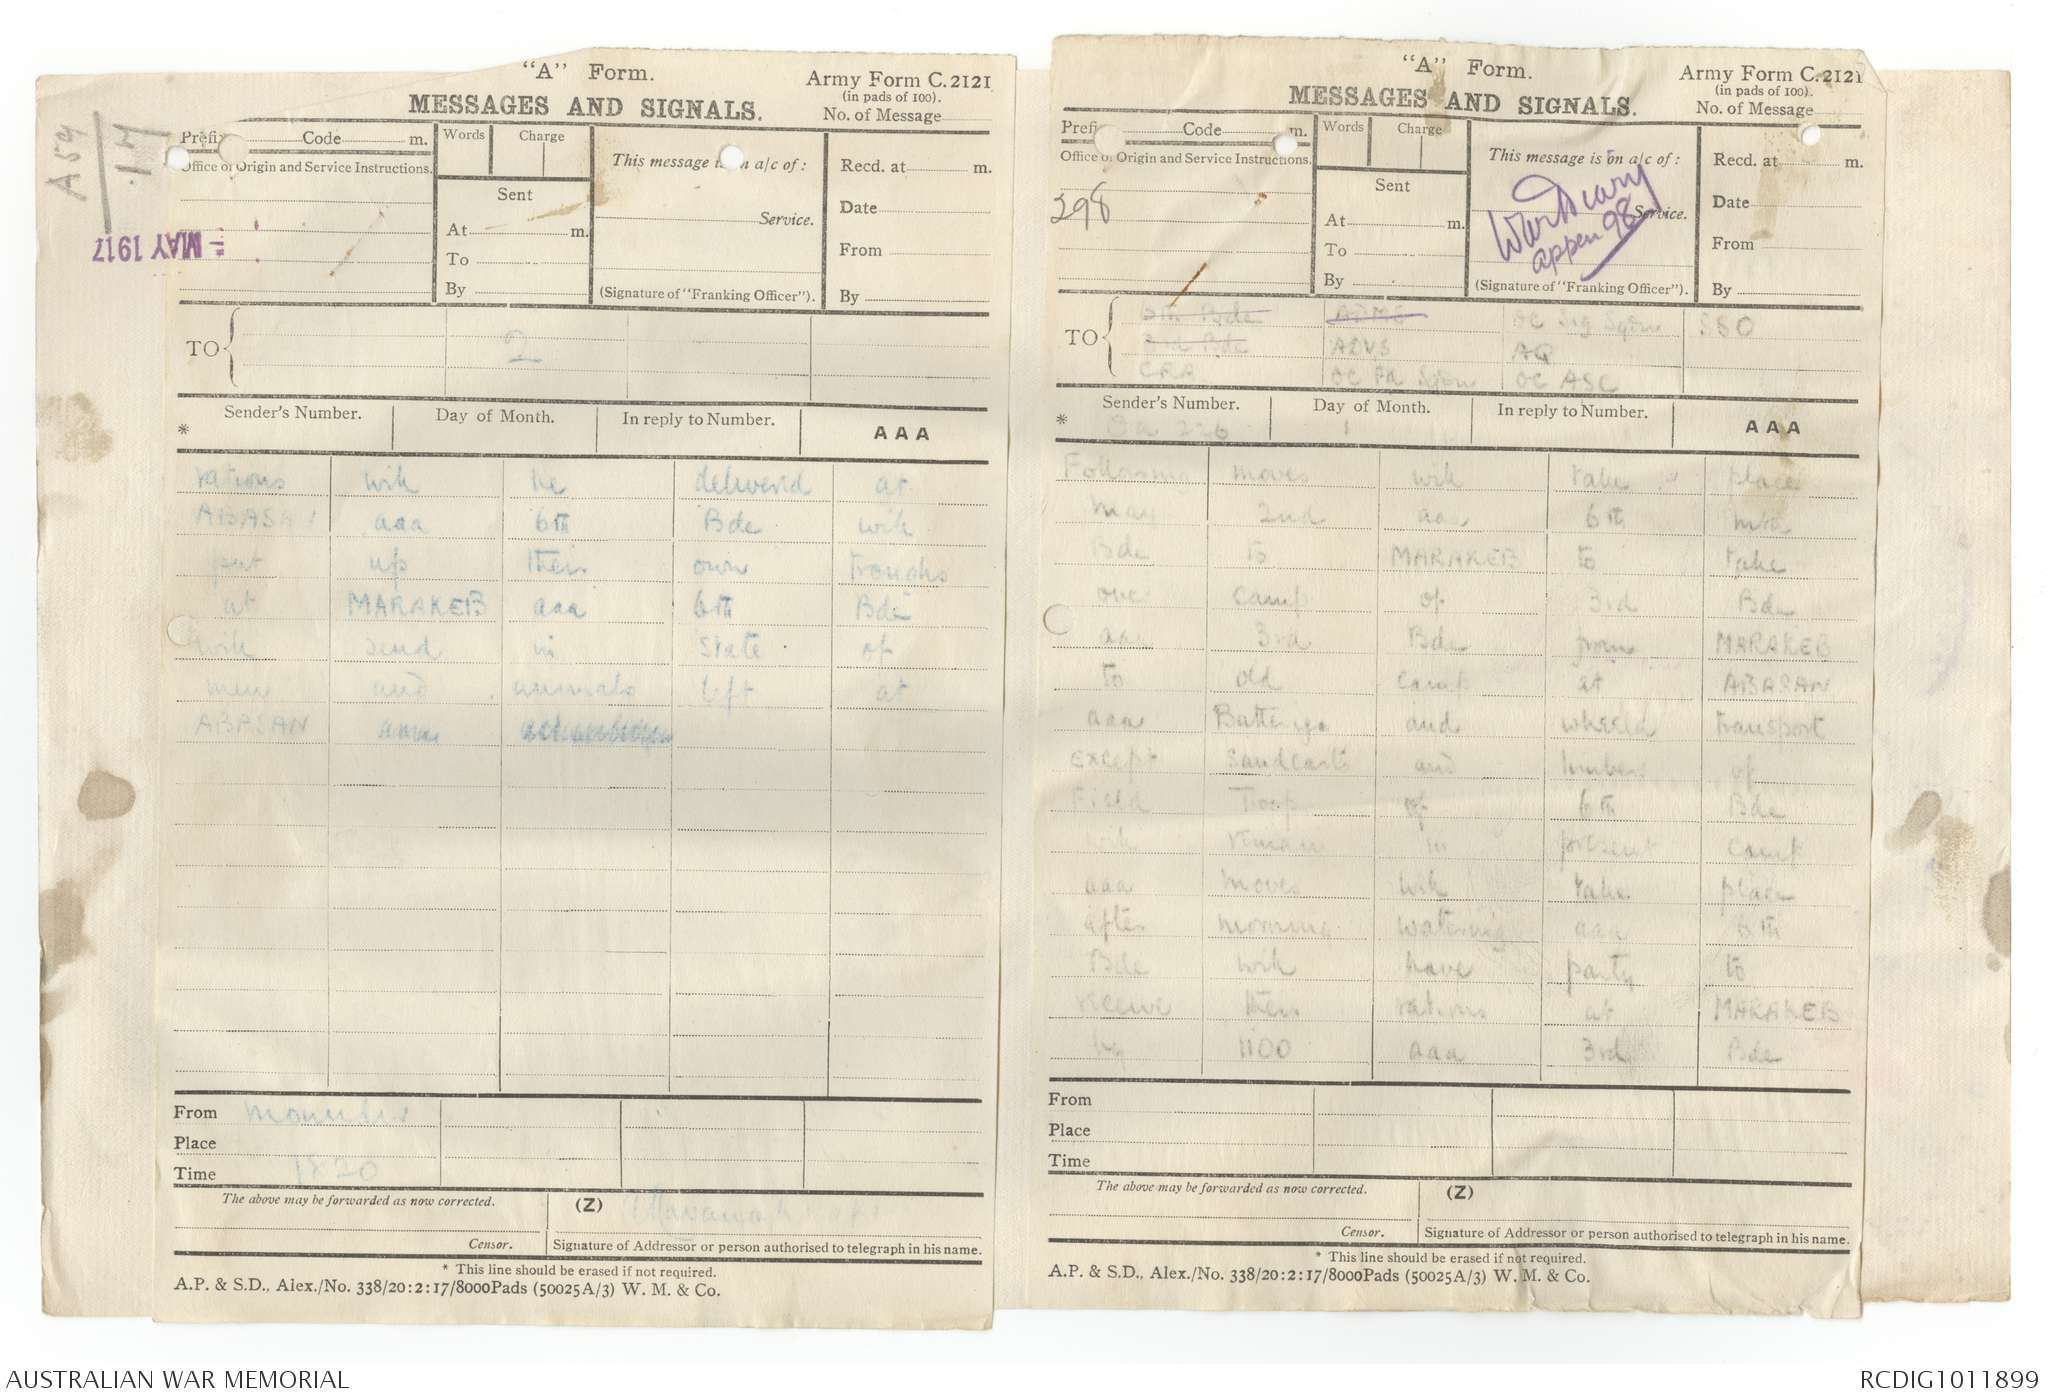 A59
1.M
- MAY 1917
"A" Form.
Army Form C.2121
(in pads of 100).
MESSAGES AND SIGNALS.
No. of Message
Prefix Code m.
Words Charge
Office of Origin and Service Instructions.
Sent
At m.
To
By
This message is on a/c of:
Service.
(Signature of "Franking Officer").
Recd. at m.
Date
From
By
TO 2
Sender's Number. Day of Month. In reply to Number. AAA
*
rations will be delivered at
ABASAN aaa 6th Bde will
put up their own troughs
at MARAKEB aaa 6th Bde
will send in state of
men and animals left at
ABASAN aaa
From
Place
Time 1820
The above may be forwarded as now corrected. (Z)
Censor. Signature of Addressor or person authorised to telegraph in his name.
* This line should be erased if not required.
A.P. & S.D., Alex./No. 338/20:2:17/8000Pads (50025A/3) W. M. & Co.
"A" Form.
Army Form C.2121
(in pads of 100).
MESSAGES AND SIGNALS.
No. of Message
Prefix Code m.
Words Charge
Office of Origin and Service Instructions.
298
Sent
At m.
To
By
This message is on a/c of:
War Diary
appen 98
Service.
(Signature of "Franking Officer").
Recd. at m.
Date
From
By
TO
6th Bde ADMS OC Sig Sqdn SSO
3rd Bde ADVS AQ
CRA OC Fd Sqdn OC ASC
Sender's Number. Day of Month. In reply to Number. AAA
* Ga 226 1
Following moves will take place
May 2nd aaa 6th mtd
Bde to MARAKEB to take
over camp of 3rd Bde
aaa 3rd Bde from MARAKEB
to old camp at ABASAN
aaa Batterys and wheeled transport
except sandcarts and limbers of
Field Troop of 6th Bde
will remain in present camp
aaa moves will take place
after morning watering aaa 6th
Bde will have party to
receive their rations at MARAKEB
by 1100 aaa 3rd Bde
From
Place
Time
The above may be forwarded as now corrected. (Z)
Censor. Signature of Addressor or person authorised to telegraph in his name.
* This line should be erased if not required.
A.P. & S.D., Alex./No. 338/20:2:17/8000Pads (50025A/3) W. M. & Co.
AUSTRALIAN WAR MEMORIAL
RCDIG1011899